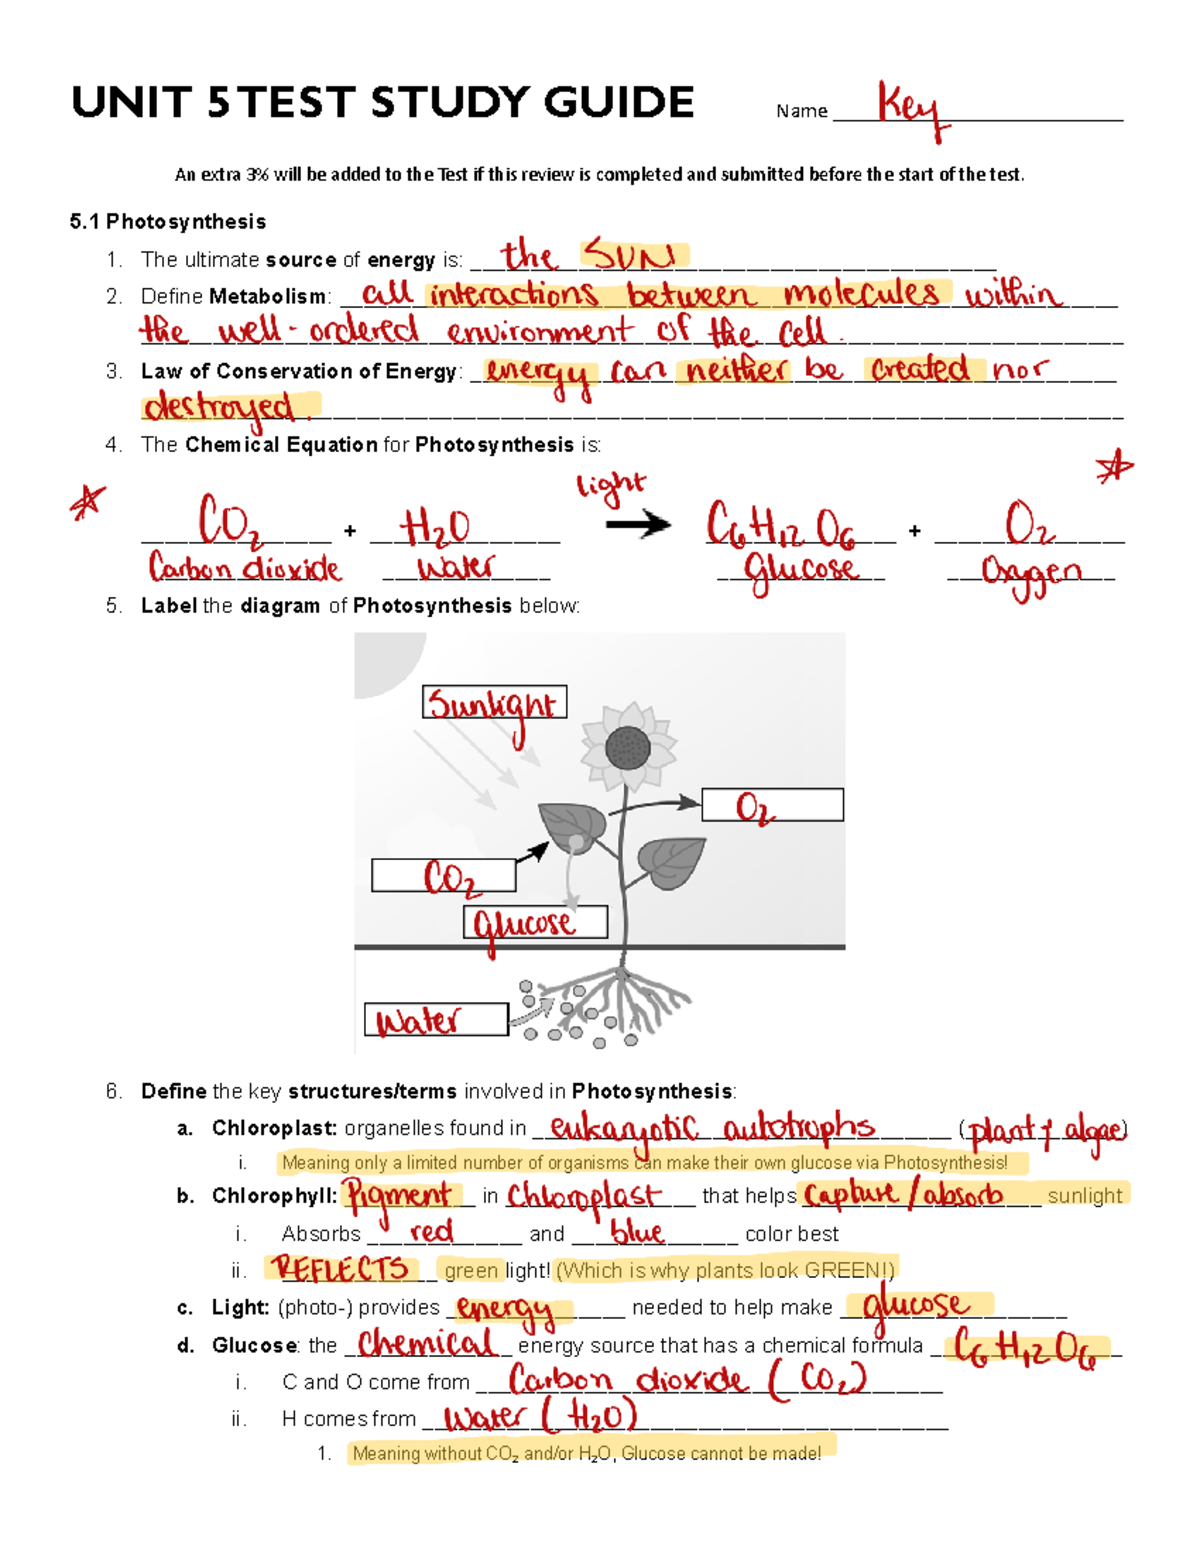 UNIT 5 TEST STUDY GUIDE Name Key
An extra 3% will be added to the Test if this review is completed and submitted before the start of the test.
5.1 Photosynthesis
1. The ultimate source of energy is: the SUN
2. Define Metabolism: all interactions between molecules within
the well-ordered environment of the cell.
3. Law of Conservation of Energy: energy can neither be created nor
destroyed.
4. The Chemical Equation for Photosynthesis is:
light
CO₂ + H₂O → C₆H₁₂O₆ + O₂
Carbon dioxide water Glucose Oxygen
5. Label the diagram of Photosynthesis below:
Sunlight
O₂
CO₂
glucose
Water
6. Define the key structures/terms involved in Photosynthesis:
a. Chloroplast: organelles found in eukaryotic autotrophs (plant & algae)
i. Meaning only a limited number of organisms can make their own glucose via Photosynthesis!
b. Chlorophyll: Pigment in Chloroplast that helps capture/absorb sunlight
i. Absorbs red and blue color best
ii. REFLECTS green light! (Which is why plants look GREEN!)
c. Light: (photo-) provides energy needed to help make glucose
d. Glucose: the chemical energy source that has a chemical formula C₆H₁₂O₆
i. C and O come from Carbon dioxide (CO₂)
ii. H comes from water (H₂O)
1. Meaning without CO₂ and/or H₂O, Glucose cannot be made!